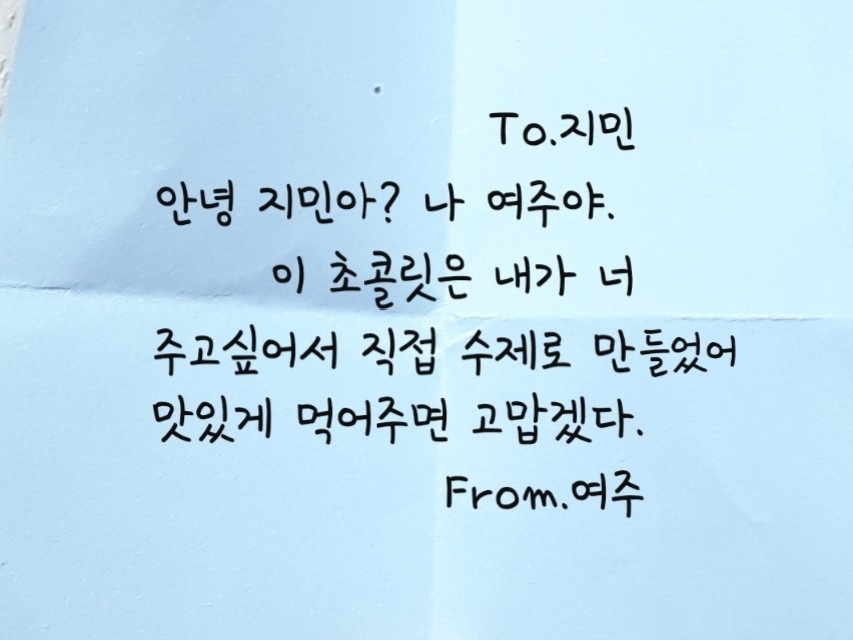 To.지민
안녕 지민아? 나 여주야.
이 초콜릿은 내가 너
주고싶어서 직접 수제로 만들었어
맛있게 먹어주면 고맙겠다.
From.여주